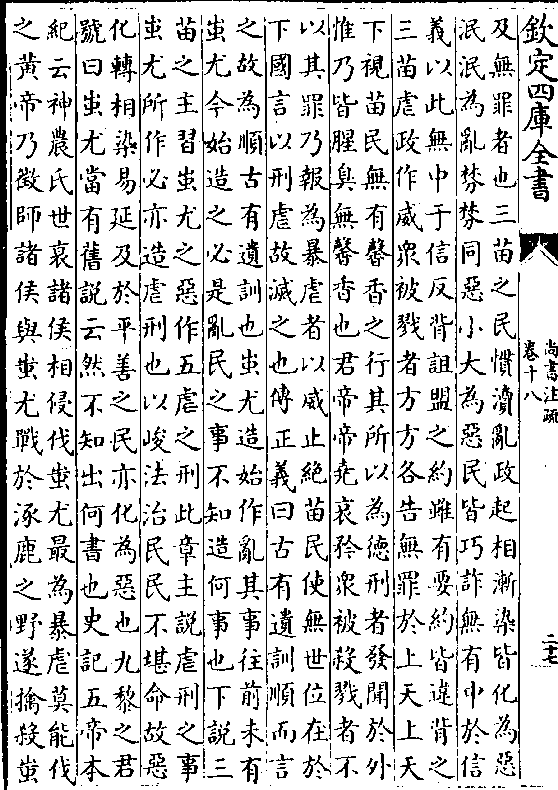 欽定四庫全書
尚書注疏
卷十八
二十七
及無罪者也三苗之民慣瀆亂政起相漸染皆化為惡
泯泯為亂棼棼同惡小大為惡民皆巧詐無有中於信
義以此無中于信反背詛盟之約雖有要約皆違背之
三苗虐政作威衆被戮者方方各告無罪於上天上天
下視苗民無有馨香之行其所以為德刑者發聞於外
惟乃皆腥臭無馨香也君帝帝堯哀矜衆被殺戮者不
以其罪乃報為暴虐者以威止絶苗民使無世位在於
下國言以刑虐故滅之也傳正義曰古有遺訓順而言
之故為順古有遺訓也蚩尤造始作亂其事往前未有
蚩尤今始造之必是亂民之事不知造何事也下説三
苗之主習蚩尤之惡作五虐之刑此章主説虐刑之事
蚩尤所作必亦造虐刑也以峻法治民民不堪命故惡
化轉相染易延及於平善之民亦化為惡也九黎之君
號曰蚩尤當有舊説云然不知出何書也史記五帝本
紀云神農氏世衰諸侯相侵伐蚩尤最為暴虐莫能伐
之黄帝乃徵師諸侯與蚩尤戰於涿鹿之野遂擒殺蚩